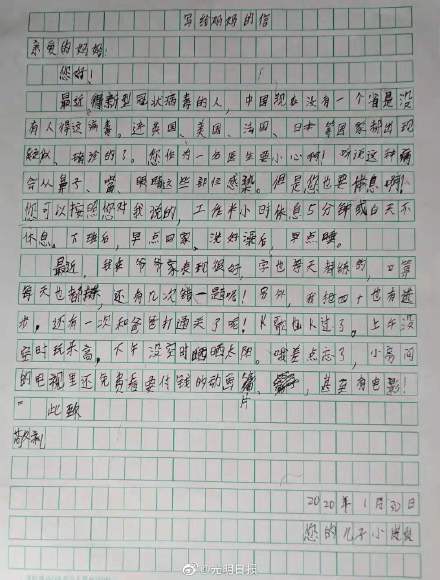 写给妈妈的信
亲爱的妈妈:
您好!
最近,得新型冠状病毒的人,中国现在没有一个省是没
有人得这病毒。连英国、美国、法国、日本等国家都出现
疑似、确诊的了。您作为一名医生要小心啊!听说这种病
会从鼻子、嘴、眼睛这些部位感染。但是,您也要休息啊!
您可以按照您对我说的,工作半小时休息5分钟或白天不
休息。下班后,早点回家。洗好澡后,早点睡。
最近,我在爷爷家表现很好,字也每天都练的,口算
每天也都,还有几次错一题呢!另外,我也有进
步。还有一次和爸爸打通关了呢!K歌也K过了。上午没
空时玩乐高。下午没空时晒晒太阳。哦差点忘了,小房间
的电视里还免费看要付钱的动画片、,甚至有电影!
此致
敬礼
2020年1月30日
您的儿子小
@光明日报